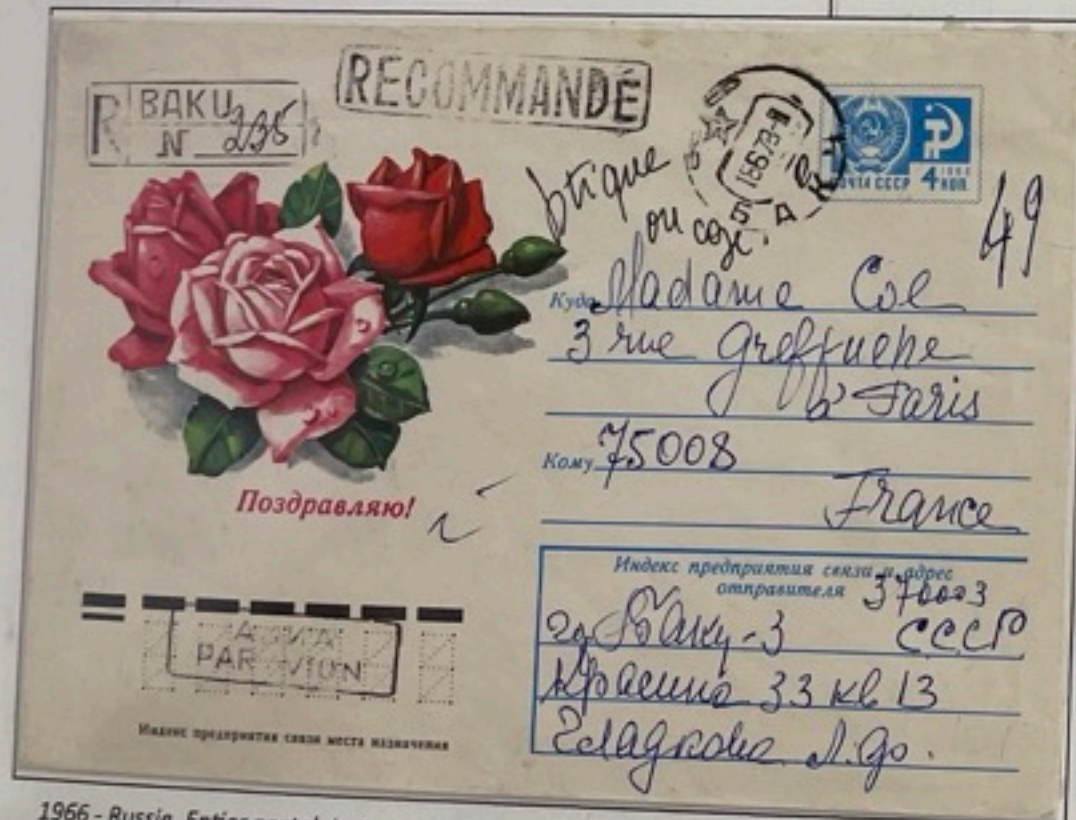 RECOMMANDÉ
R BAKU
N 235
18673
БАКУ
ПОЧТА СССР 4 КОП
1966
49
ou
Куда Madame Coe
3 rue Greffuehe
à Paris
Кому 75008
France
Поздравляю!
Индекс предприятия связи и адрес
отправителя 370003
Баку-3 СССР
Красина 33 кв 13
Гладкова Л.
АВИА
PAR AVION
Индекс предприятия связи места назначения
1966 - Russie.